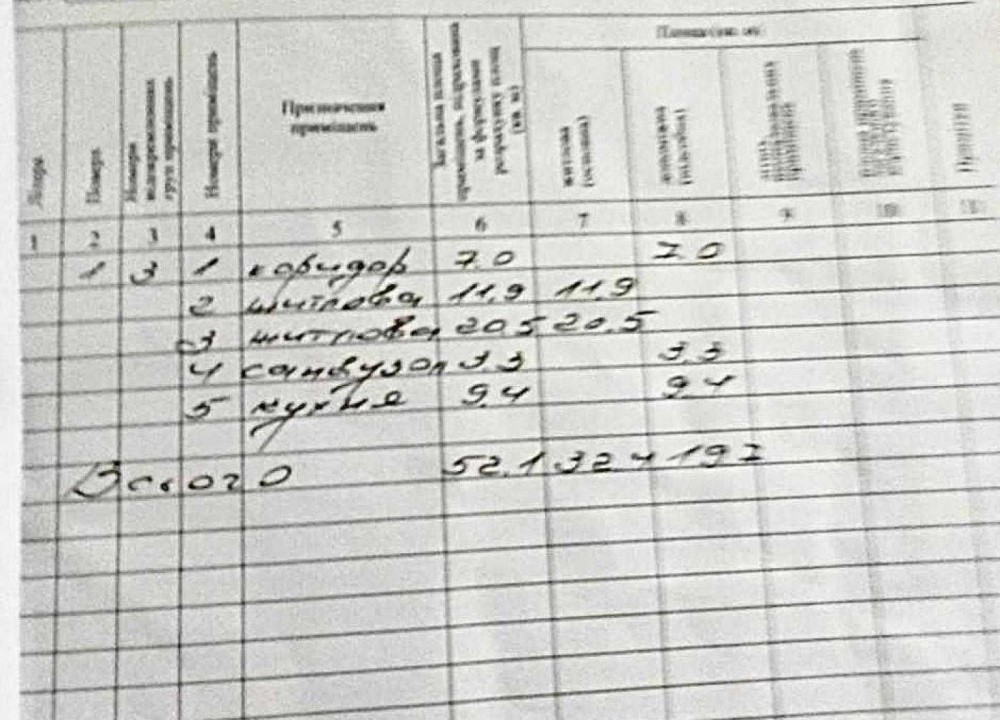 Площа (кв. м)
Літера
Поверх
Номери відокремлених груп приміщень
Номери приміщень
Призначення приміщень
Загальна площа приміщень, підрахована за формулами розрахунку площ (кв. м)
житлова (основна)
допоміжна (підсобна)
Примітки
1 2 3 4 5 6 7 8 9 10 11
1 3 1 коридор 7.0 7.0
2 житлова 11,9 11,9
3 житлова 20.5 20.5
4 санвузол 3.3 3.3
5 кухня 9.4 9.4
Всього 52.1 32.4 19.7